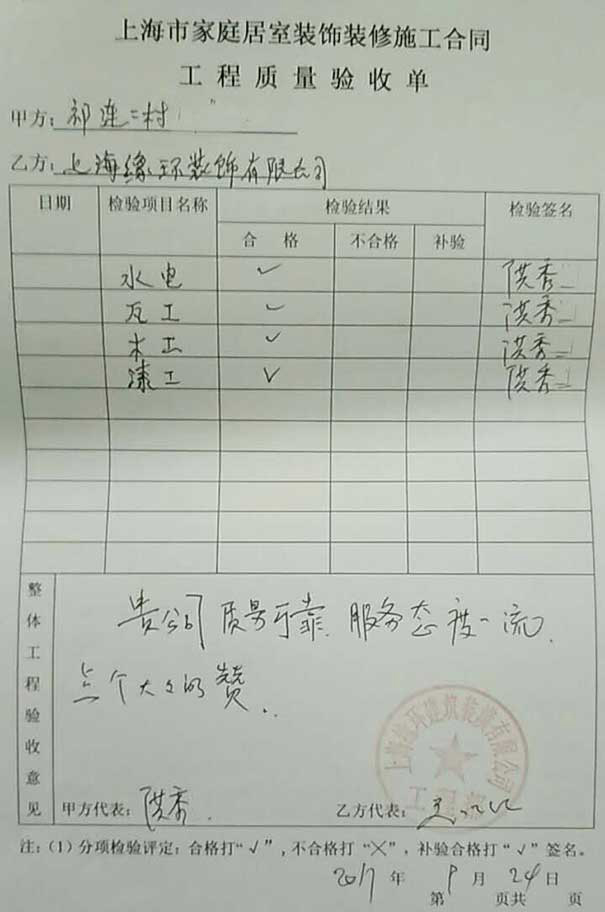 上海市家庭居室装饰装修施工合同
工程质量验收单
甲方：祁连二村
乙方：上海缘环装饰有限公司
日期 检验项目名称 检验结果 检验签名
合格 不合格 补验
水电 ✓ 洪秀
瓦工 ✓ 洪秀
木工 ✓ 洪秀
漆工 ✓ 洪秀
整体工程验收意见
贵公司质量可靠 服务态度一流.
点个大大的赞.
上海缘环建筑装潢有限公司
甲方代表：洪秀.
乙方代表：
注：(1) 分项检验评定：合格打“√”，不合格打“╳”，补验合格打“√”签名。
2017年9月24日
第 页共 页